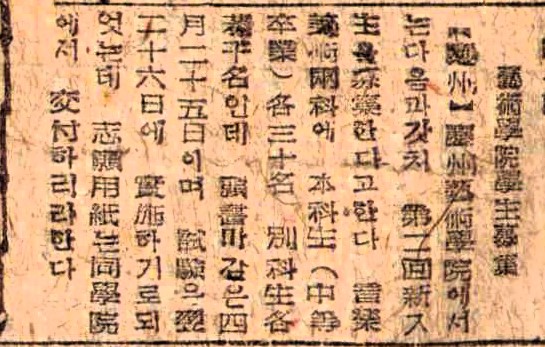 藝術學院學生募集
【慶州】慶州藝術學院에서
는다음과갓치 第二回新入
生을募集한다고한다 音樂
美術兩科에 本科生(中等
卒業)各三十名 別科生各
若干名인데 願書마감은四
月二十五日이며 試驗은
二十六日에 實施하기로되
엿는데 志願用紙는同學院
에서 交付하리라한다